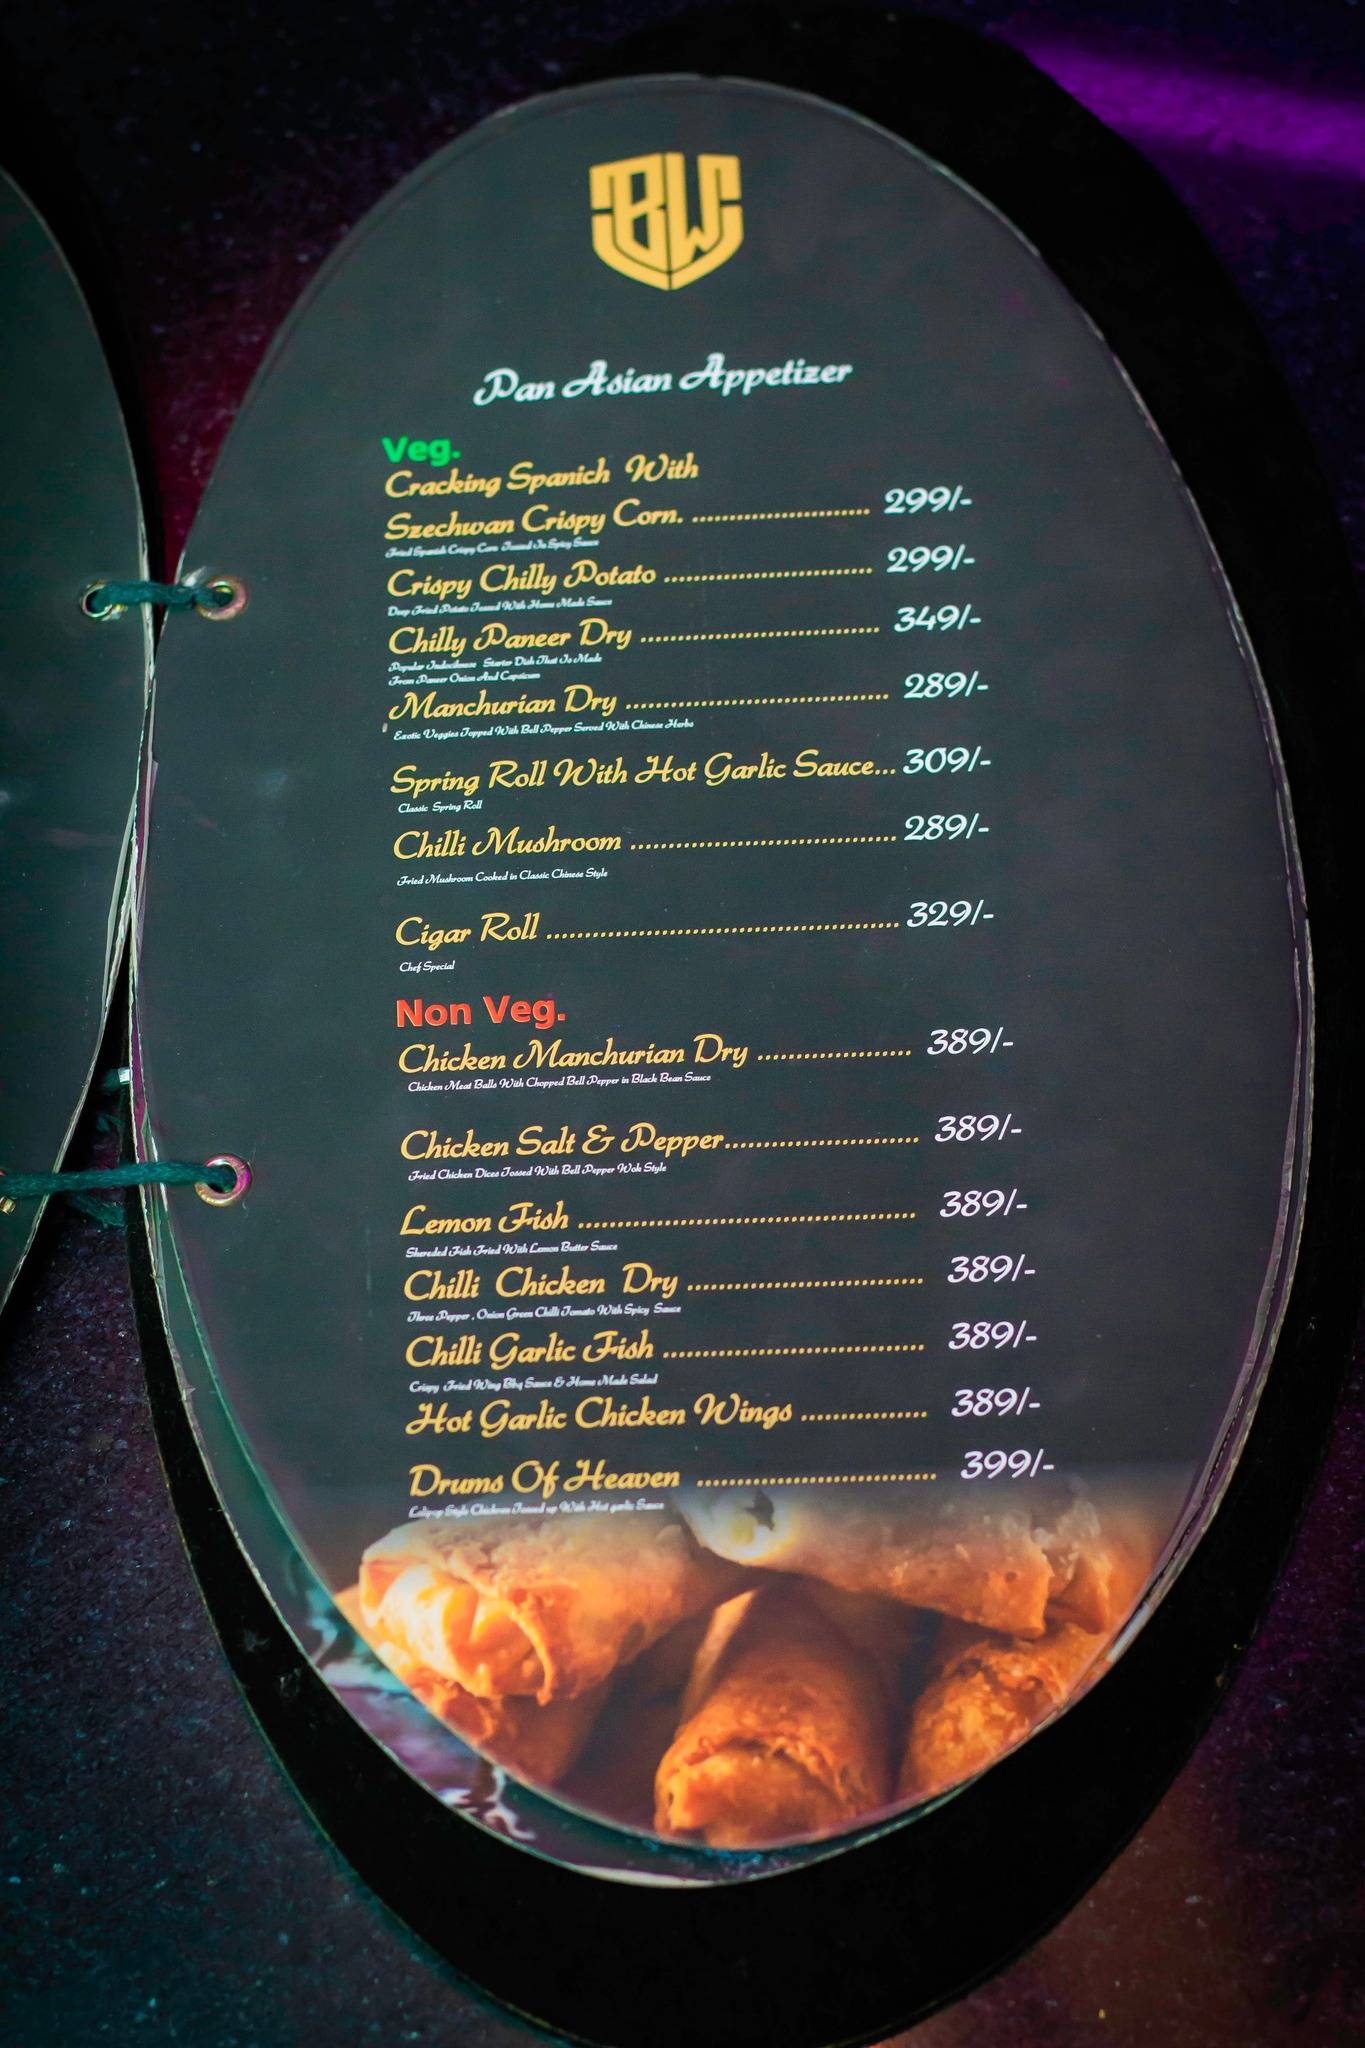 BW
Pan Asian Appetizer
Veg.
Cracking Spanich With
Szechwan Crispy Corn. ........................ 299/-
Fried Spanish Crispy Corn Tossed In Spicy Sauce
Crispy Chilly Potato ............................ 299/-
Deep Fried Potato Tossed With Home Made Sauce
Chilly Paneer Dry ................................ 349/-
Popular Indochinese Starter Dish That Is Made
From Paneer Onion And Capsicum
Manchurian Dry ................................... 289/-
Exotic Veggies Topped With Bell Pepper Served With Chinese Herbs
Spring Roll With Hot Garlic Sauce... 309/-
Classic Spring Roll
Chilli Mushroom .................................... 289/-
Fried Mushroom Cooked in Classic Chinese Style
Cigar Roll ............................................... 329/-
Chef Special
Non Veg.
Chicken Manchurian Dry ..................... 389/-
Chicken Meat Balls With Chopped Bell Pepper in Black Bean Sauce
Chicken Salt & Pepper.......................... 389/-
Fried Chicken Dices Tossed With Bell Pepper Wok Style
Lemon Fish ............................................. 389/-
Shereded Fish Fried With Lemon Butter Sauce
Chilli Chicken Dry ................................ 389/-
Three Pepper , Onion Green Chilli Tomato With Spicy Sauce
Chilli Garlic Fish ................................... 389/-
Crispy Fried Wing Bbq Sauce & Home Made Salad
Hot Garlic Chicken Wings ................. 389/-
Drums Of Heaven ................................ 399/-
Lolipop Style Chicken Tossed up With Hot garlic Sauce